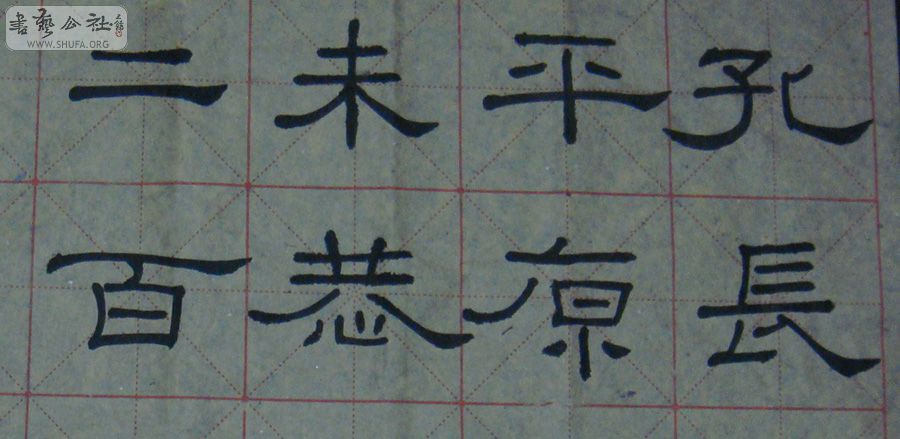 書藝公社
WWW.SHUFA.ORG
孔長
平原
未恭
二百